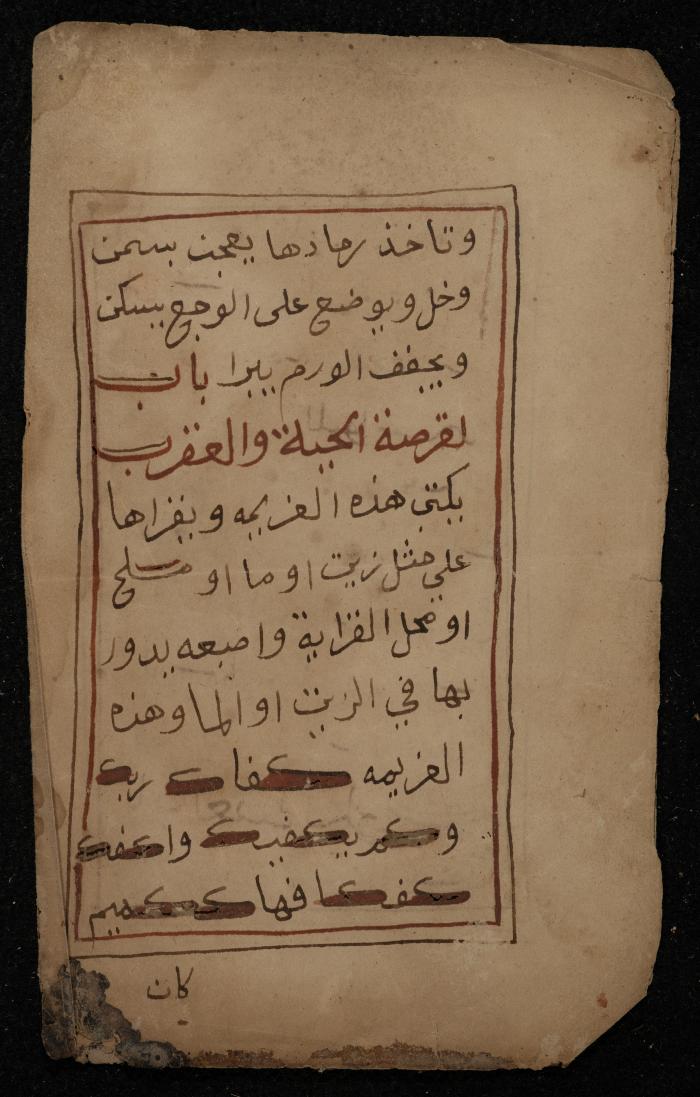 وتاخذ رمادها يعجن بسمن
وخل ويوضع على الوجع يسكن
ويجفف الورم يبرا باب
لقرصة الحية والعقرب
يكتب هذه العزيمه ويقراها
علي مثل زيت او ما او ملح
او محل القراية واصبعه يدور
بها في الزيت او الما وهذه
العزيمه كفاك ربك
وكم يكفيك واكفه
كفكا فها ككميم
كان